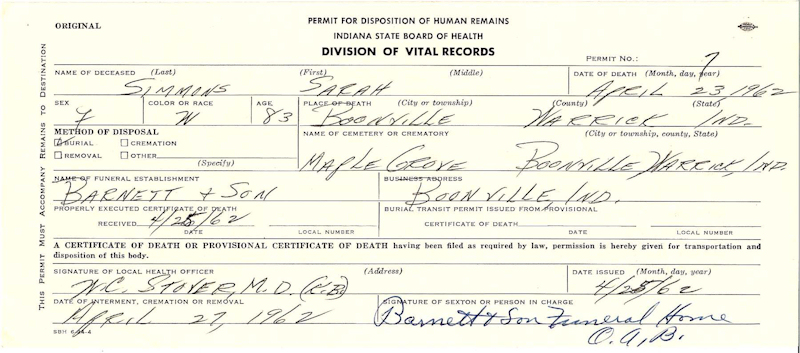 ORIGINAL
PERMIT FOR DISPOSITION OF HUMAN REMAINS
INDIANA STATE BOARD OF HEALTH
DIVISION OF VITAL RECORDS
PERMIT NO.: 7
NAME OF DECEASED (Last) (First) (Middle) DATE OF DEATH (Month, day, year)
SIMMONS SARAH APRIL 23 1962
SEX COLOR OR RACE AGE PLACE OF DEATH (City or township) (County) (State)
F W 83 BOONVILLE WARRICK IND.
METHOD OF DISPOSAL NAME OF CEMETERY OR CREMATORY (City or township, county, State)
BURIAL CREMATION
REMOVAL OTHER
(Specify)
MAPLE GROVE BOONVILLE WARRICK, IND.
NAME OF FUNERAL ESTABLISHMENT BUSINESS ADDRESS
BARNETT + SON BOONVILLE, IND.
PROPERLY EXECUTED CERTIFICATE OF DEATH BURIAL TRANSIT PERMIT ISSUED FROM PROVISIONAL
RECEIVED 4/25/62 CERTIFICATE OF DEATH
DATE LOCAL NUMBER DATE LOCAL NUMBER
A CERTIFICATE OF DEATH OR PROVISIONAL CERTIFICATE OF DEATH having been filed as required by law, permission is hereby given for transportation and
disposition of this body.
SIGNATURE OF LOCAL HEALTH OFFICER (Address) DATE ISSUED (Month, day, year)
W.C. STOVER, M.D. (K.B.) 4/25/62
DATE OF INTERMENT, CREMATION OR REMOVAL SIGNATURE OF SEXTON OR PERSON IN CHARGE
APRIL 27, 1962 Barnett & Son Funeral Home
O.A.B.
THIS PERMIT MUST ACCOMPANY REMAINS TO DESTINATION